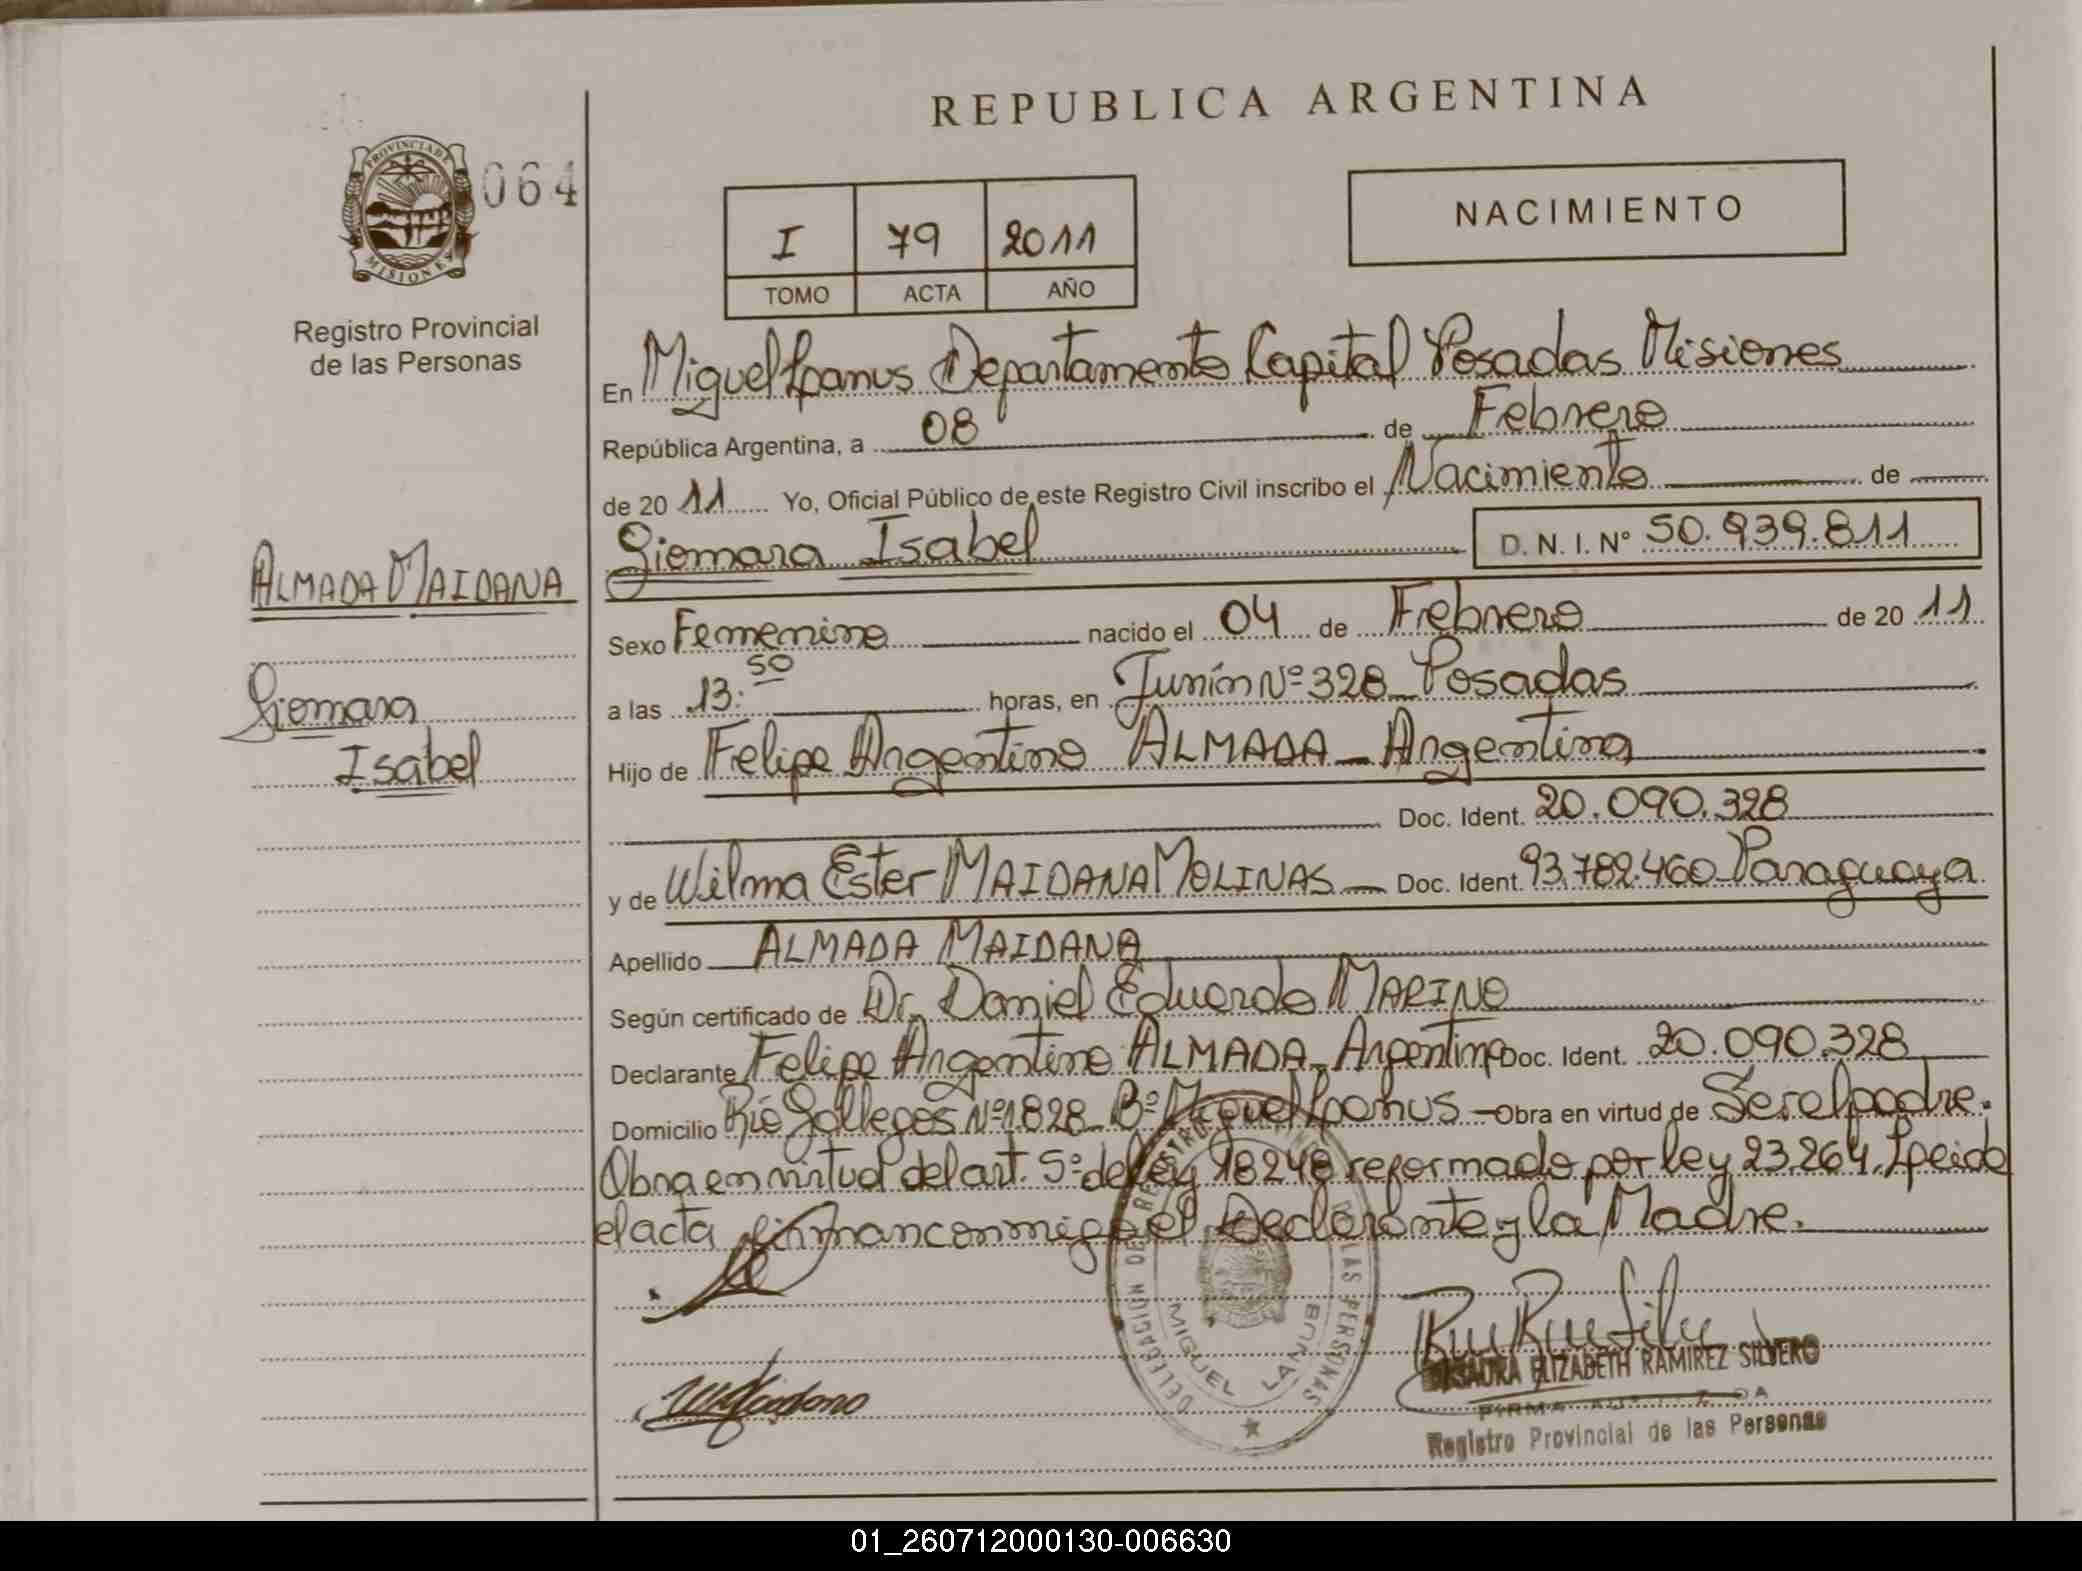 REPUBLICA ARGENTINA
PROVINCIA DE
MISIONES
064
Registro Provincial
de las Personas
I 79 2011
TOMO ACTA AÑO
NACIMIENTO
En Miguel Lanus Departamento Capital Posadas Misiones
República Argentina, a 08 de Febrero
de 20 11 Yo, Oficial Público de este Registro Civil inscribo el Nacimiento de
Giomara Isabel D. N. I. Nº 50.939.811
ALMADA MAIDANA
Giomara
Isabel
Sexo Femenino nacido el 04 de Febrero de 20 11
a las 13:50 horas, en Junín Nº 328 Posadas
Hijo de Felipe Argentino ALMADA - Argentina
Doc. Ident. 20.090.328
y de Wilma Ester MAIDANA MOLINAS - Doc. Ident. 93.782.460 Paraguaya
Apellido ALMADA MAIDANA
Según certificado de Dr. Daniel Eduardo MARINO
Declarante Felipe Argentino ALMADA - Argentino Doc. Ident. 20.090.328
Domicilio Rió Gallegos Nº 1828 Bº Miguel Lanus - Obra en virtud de Ser el padre.
Obra en virtud del art. 5º de ley 18248 reformado por ley 23.264. Leida
el acta firman conmigo el Declarante y la Madre.
DELEGACION DEL REGISTRO PROVINCIAL DE LAS PERSONAS
MIGUEL LANUS
ELIZABETH RAMIREZ SILVERO
FIRMA AUTORIZADA
Registro Provincial de las Personas
01_260712000130-006630